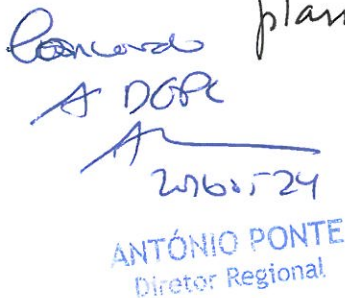 plan
Concordo
À DGPC
2016.05.24
ANTÓNIO PONTE
Diretor Regional